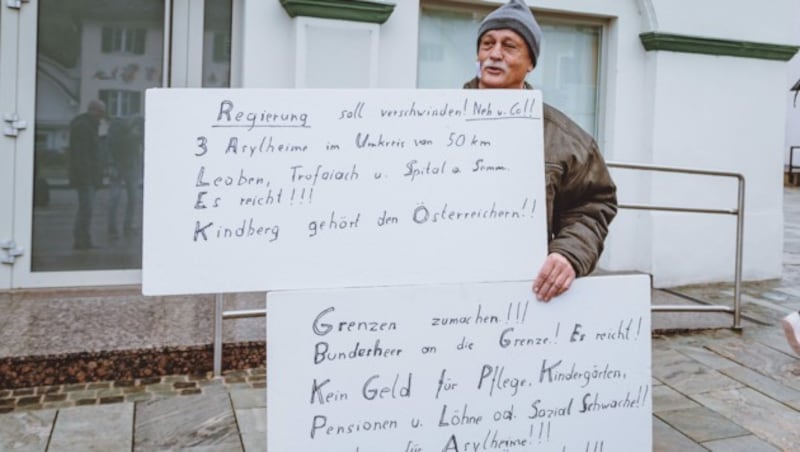 Regierung soll verschwinden! Neh u. Co!!
3 Asylheime im Umkreis von 50 km
Leoben, Trofaiach u. Spital a. Semm.
Es reicht!!!
Kindberg gehört den Österreichern!!
Grenzen zumachen!!!
Bundesheer an die Grenze! Es reicht!
Kein Geld für Pflege, Kindergärten,
Pensionen u. Löhne od. Sozial Schwache!!
für Asylheime!!!